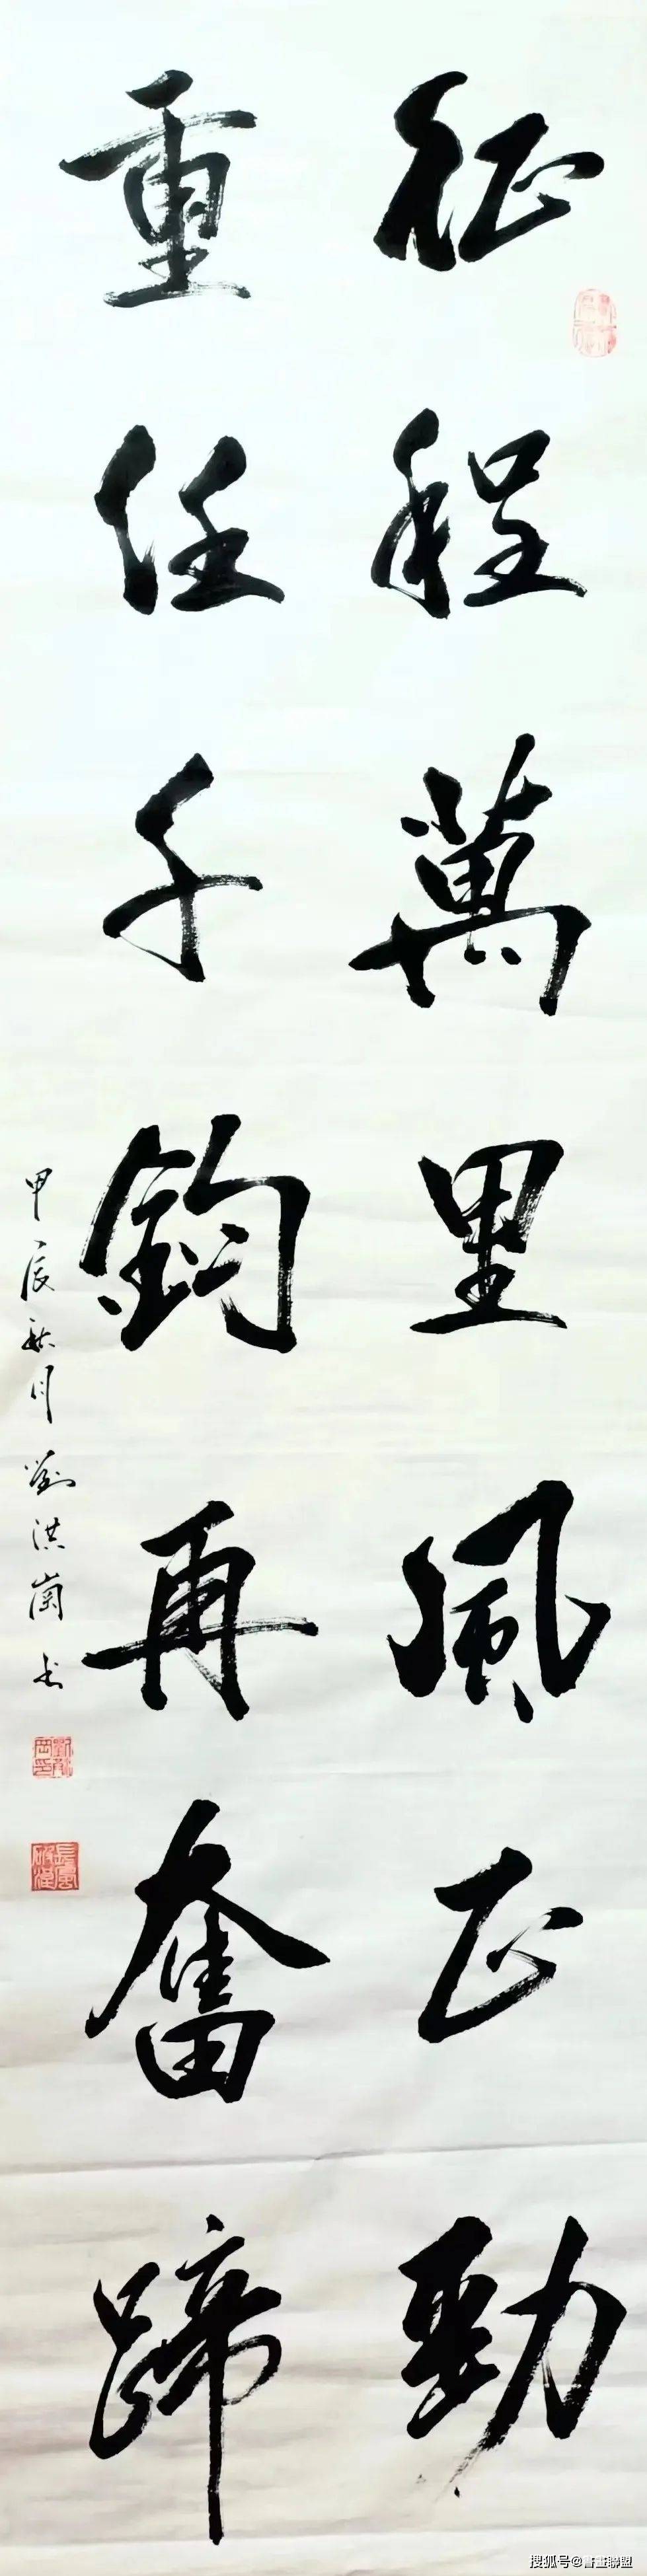 征程萬里風正勁
重任千鈞再奮蹄
甲辰秋月劉洪崗书
長風破浪
搜狐号@書畫聯盟